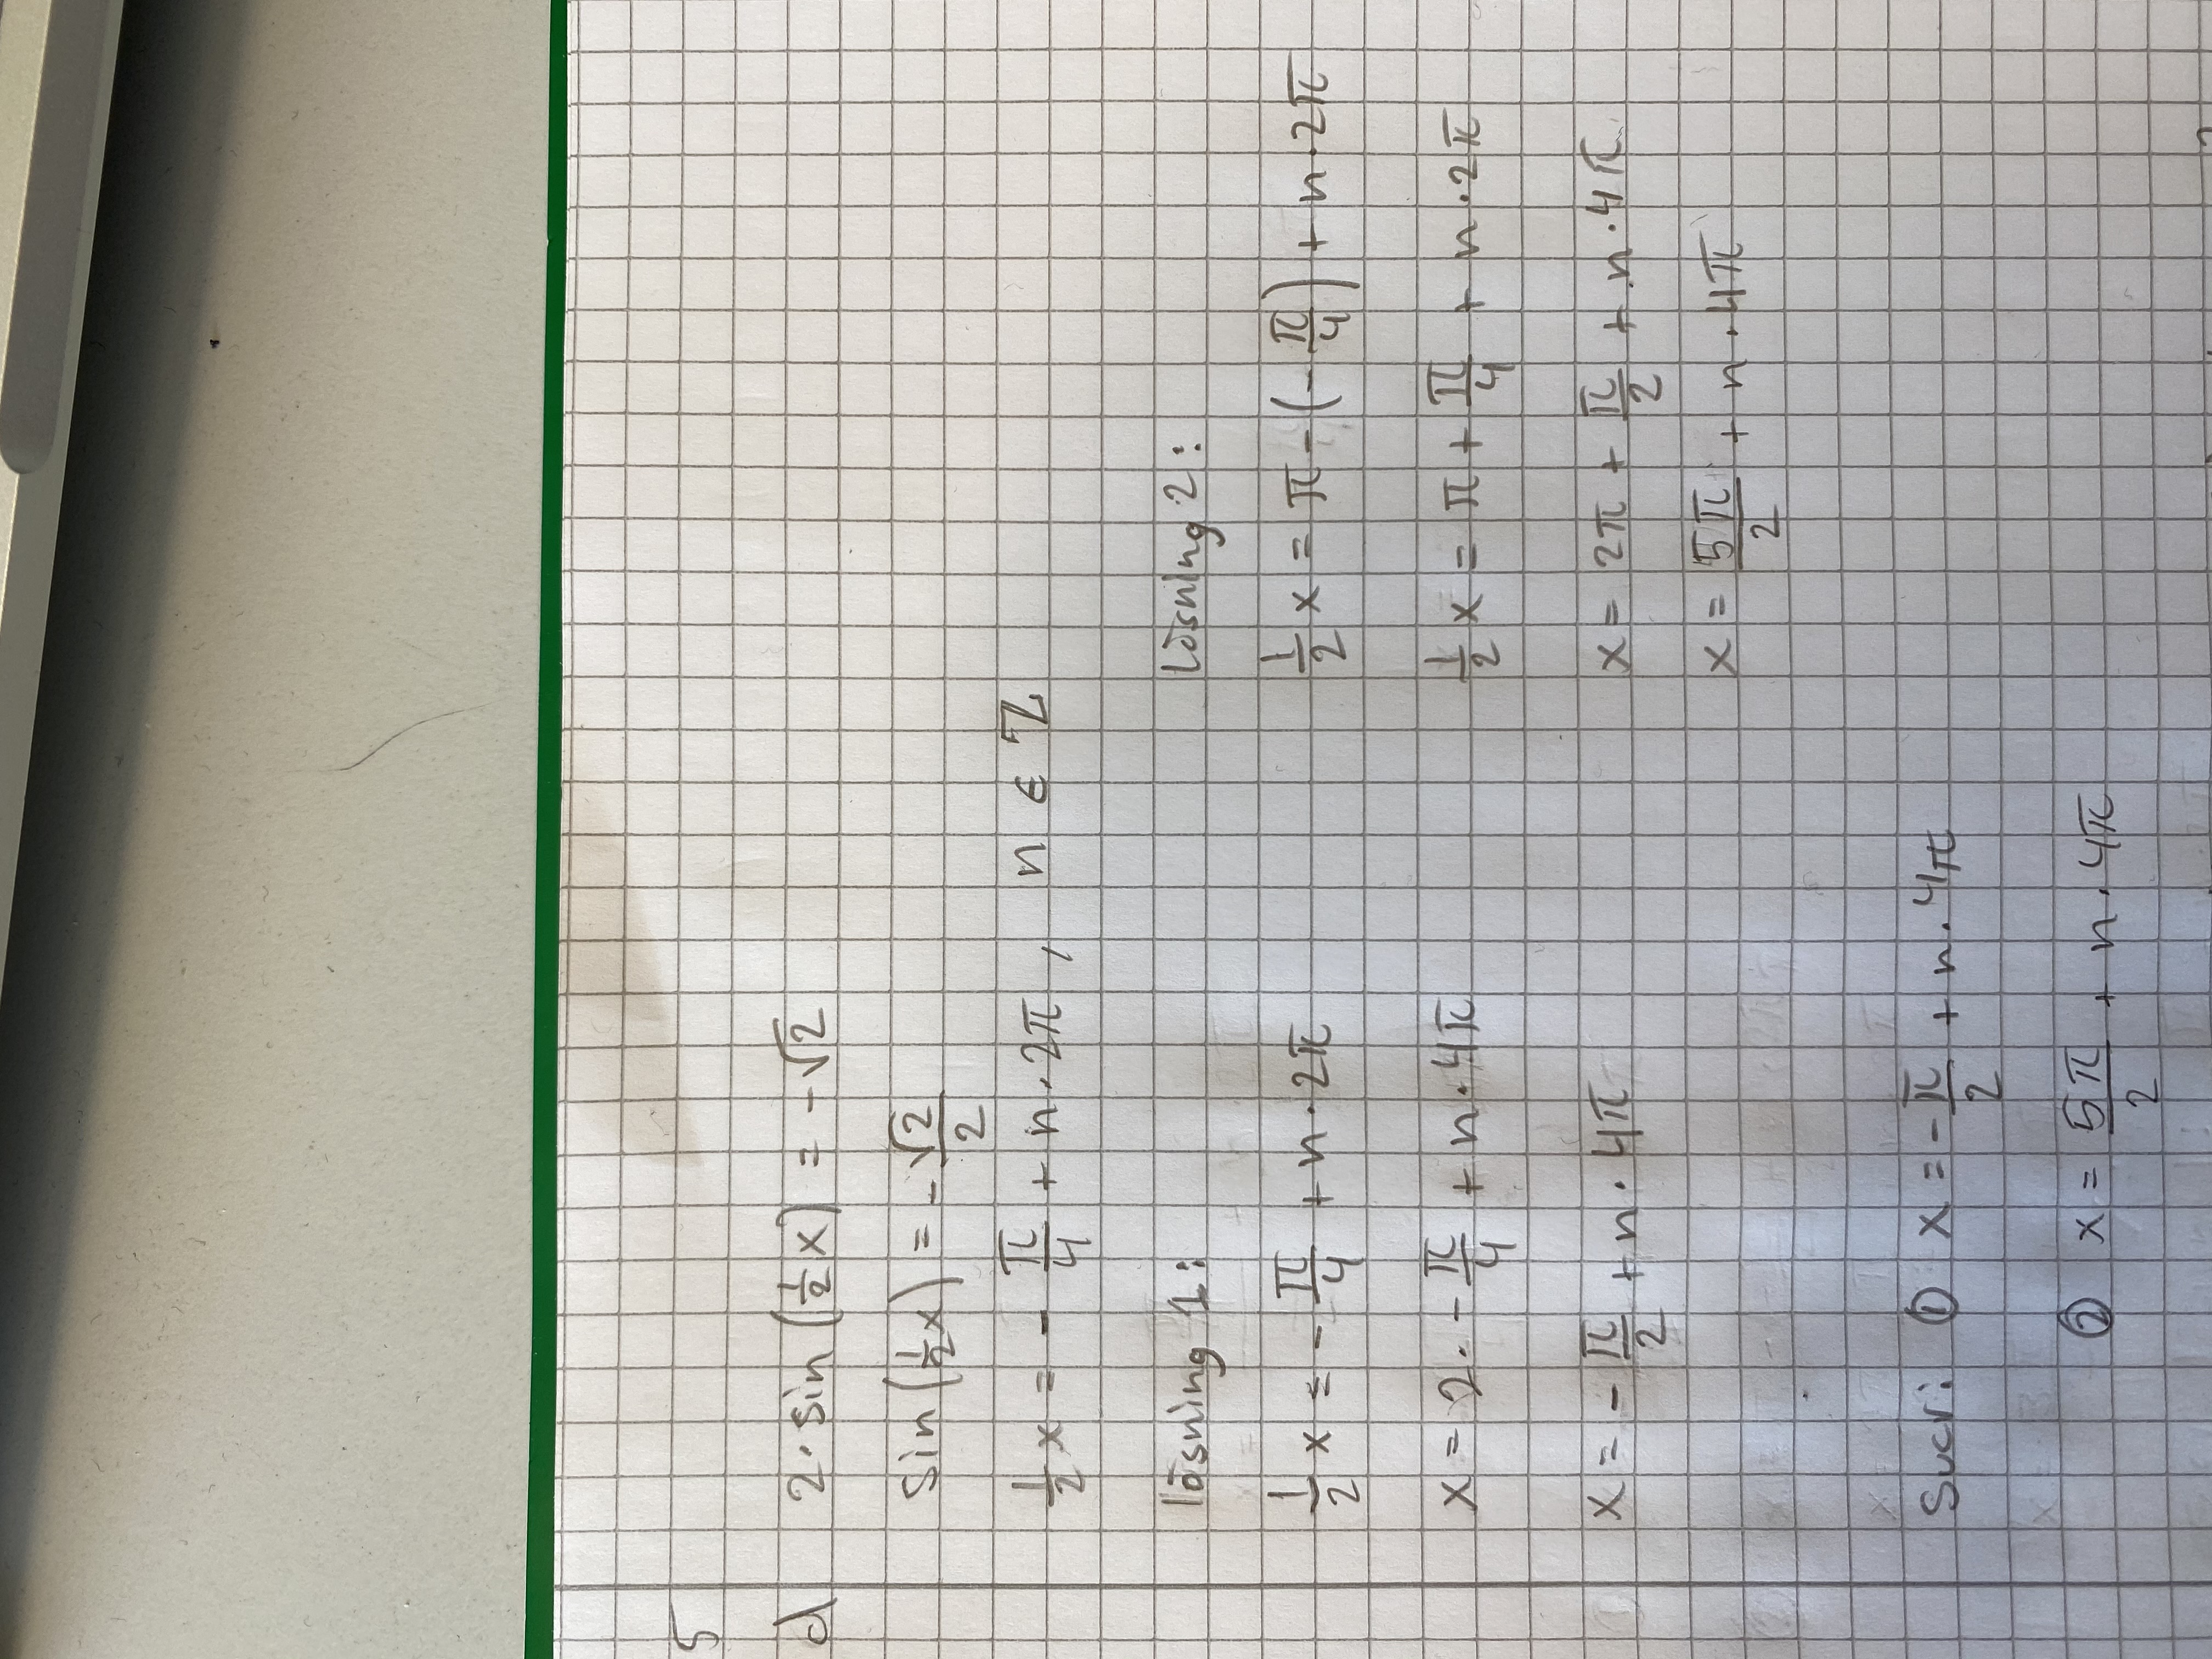 5
d 2·sin(½x) = -√2
sin(½x) = -√2/2
½x = -π/4 + n·2π, n ∈ ℤ
lösning 1:
½x = -π/4 + n·2π
x = 2·-π/4 + n·4π
x = -π/2 + n·4π
Lösning 2:
½x = π-(-π/4) + n·2π
½x = π + π/4 + n·2π
x = 2π + π/2 + n·4π
x = 5π/2 + n·4π
Svar: ① x = -π/2 + n·4π
② x = 5π/2 + n·4π